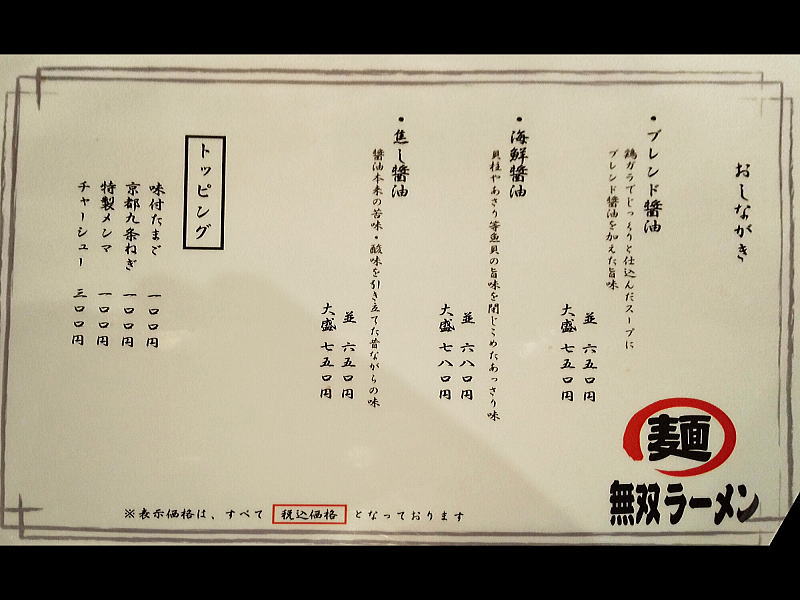 おしながき
・ブレンド醤油
鶏ガラでじっくりと仕込んだスープに
ブレンド醤油を加えた旨味
並 六五〇円
大盛 七五〇円
・海鮮醤油
貝柱やあさり等魚貝の旨味を閉じこめたあっさり味
並 六八〇円
大盛 七八〇円
・焦し醤油
醤油本来の苦味・酸味を引き立てた昔ながらの味
並 六五〇円
大盛 七五〇円
トッピング
味付たまご 一〇〇円
京都九条ねぎ 一〇〇円
特製メンマ 一〇〇円
チャーシュー 三〇〇円
※表示価格は、すべて 税込価格 となっております
麺
無双ラーメン